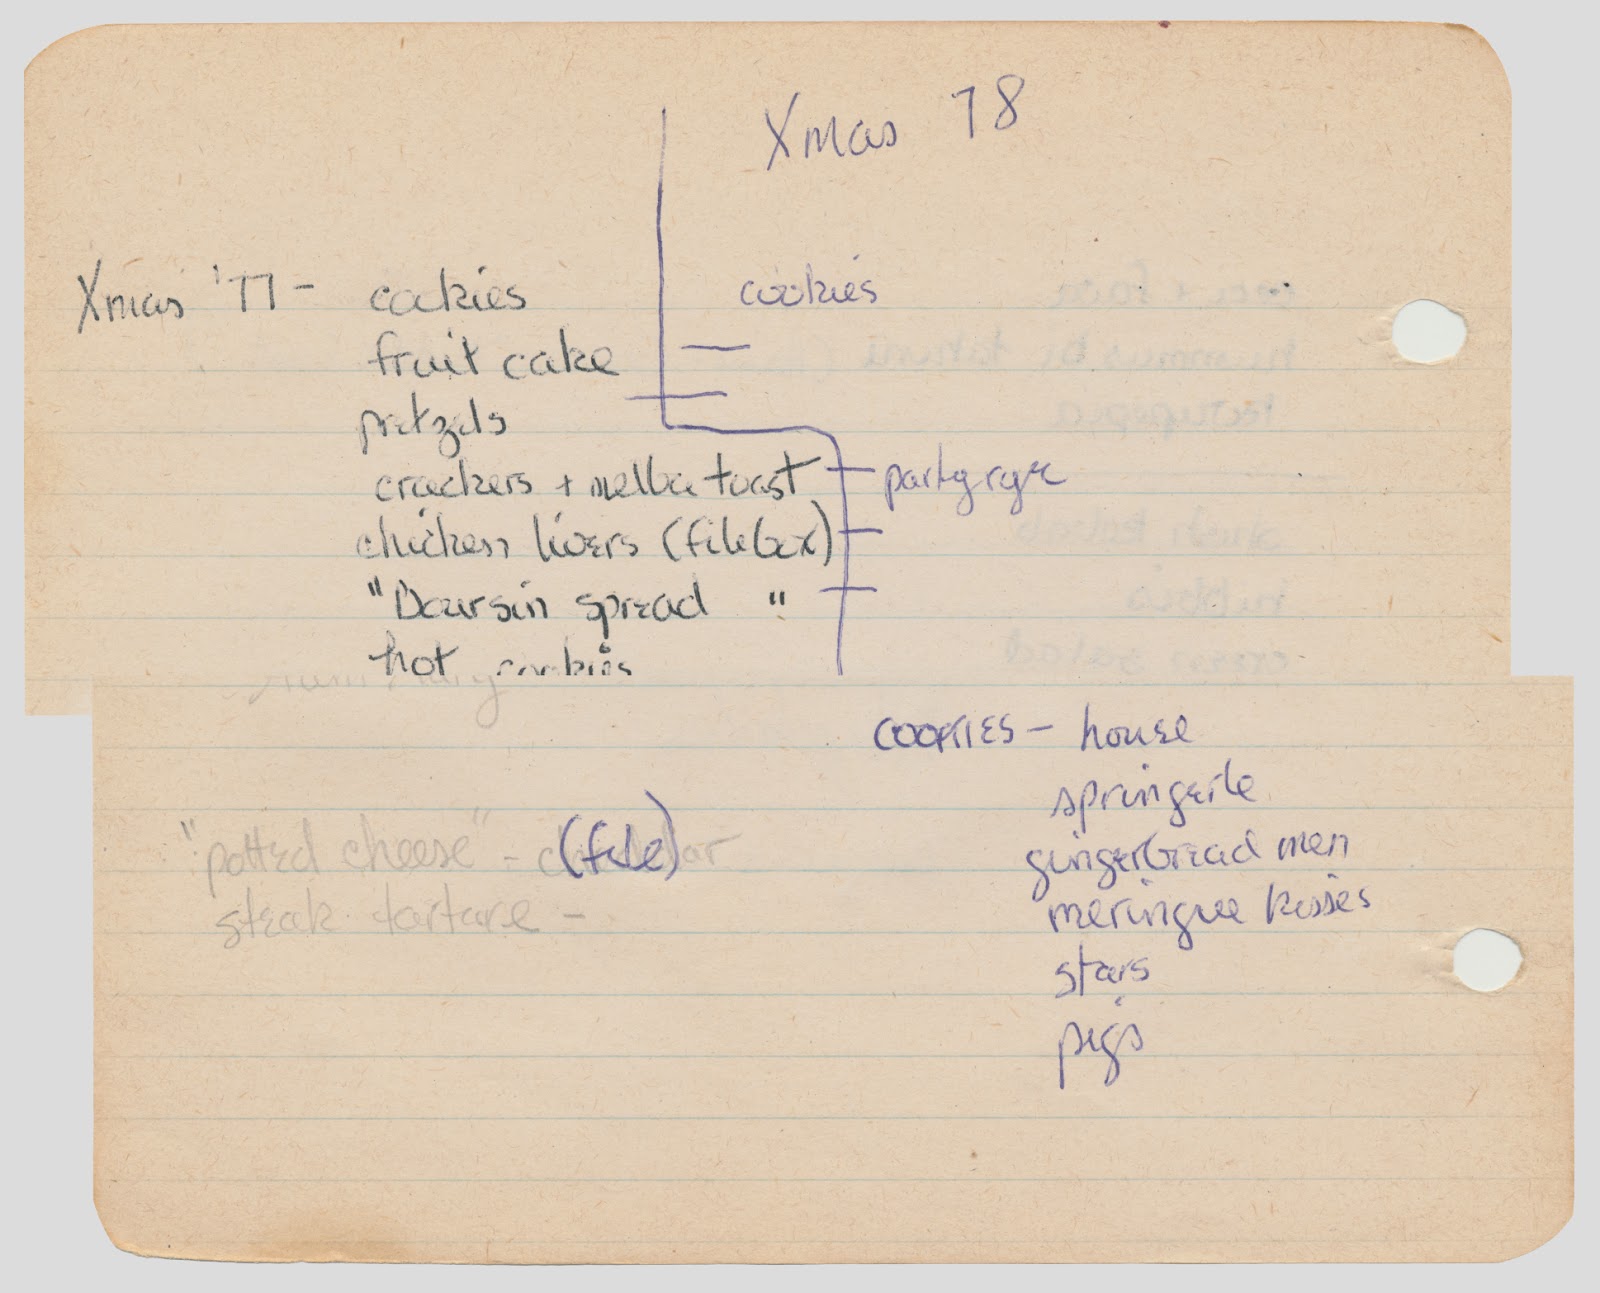 Xmas 78
Xmas '77 - cookies cookies
fruit cake —
pretzels —
crackers + melba toast — party rye
chicken livers (filebox) —
"Boursin spread " —
hot cookies
COOKIES - house
springerle
"potted cheese" - (file)
gingerbread men
steak tartare -
meringue kisses
stars
pigs